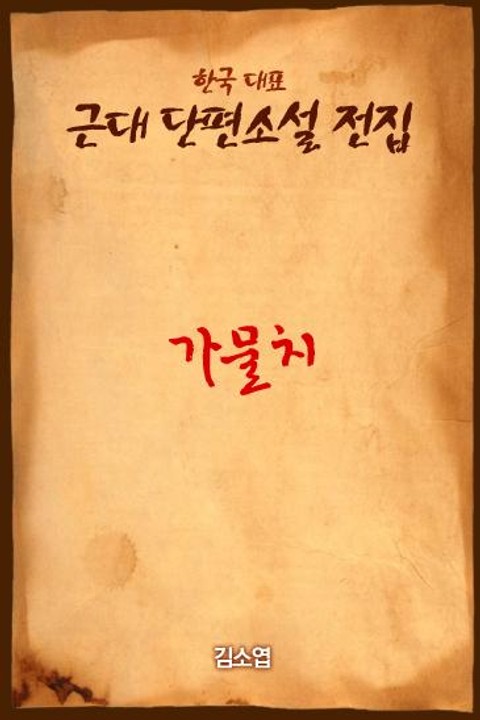 한국 대표
근대 단편소설 전집
가물치
김소엽